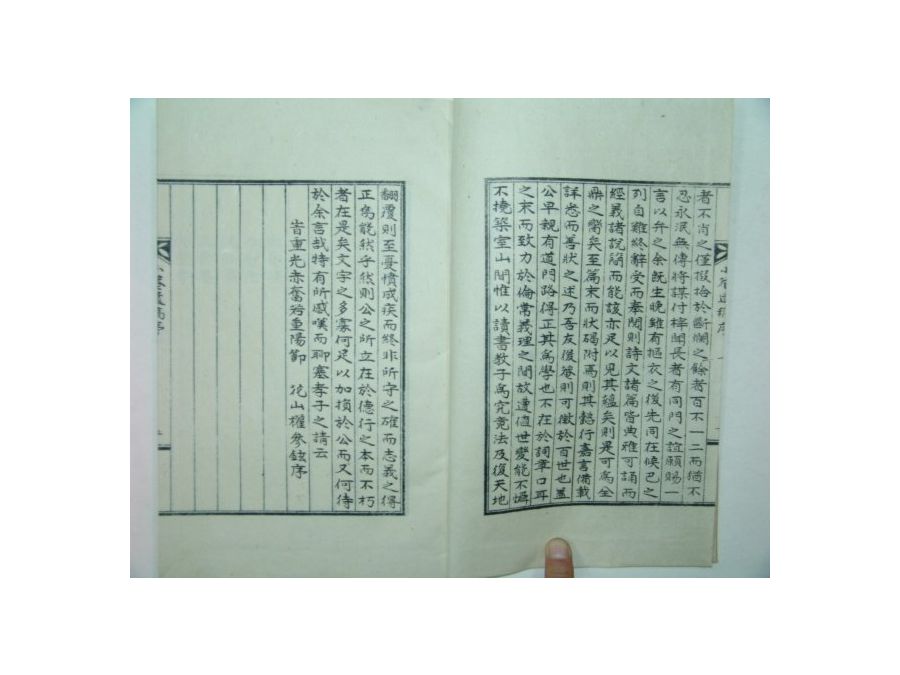 者不肖之僅掇拾於斷爛之餘者百不一二而猶不
忍永泯無傳將謀付梓聞長者有同門之誼願賜一
言以弁之余旣生晚雖有摳衣之後先同在候芭之
列自難終辭受而奉閱則詩文諸篇皆典雅可誦而
經義諸說簡而能該亦足以見其蘊矣則是可爲全
鼎之臠矣至篇末而狀碣附焉則其懿行嘉言備載
詳悉而善狀之述乃吾友後菴則可徵於百世也蓋
公早親有道門路得正其爲學也不在於詞章口耳
之末而致力於倫常義理之間故遭値世變能不懾
不撓築室山間惟以讀書敎子爲究竟法及復天地
翻覆則至憂憤成疾而終非所守之確而志義之得
正爲能然乎然則公之所立在於德行之本而不朽
者在是矣文字之多寡何足以加損於公而又何待
於余言哉特有所感嘆而聊塞孝子之請云
旹重光赤奮若重陽節 花山權參鉉序